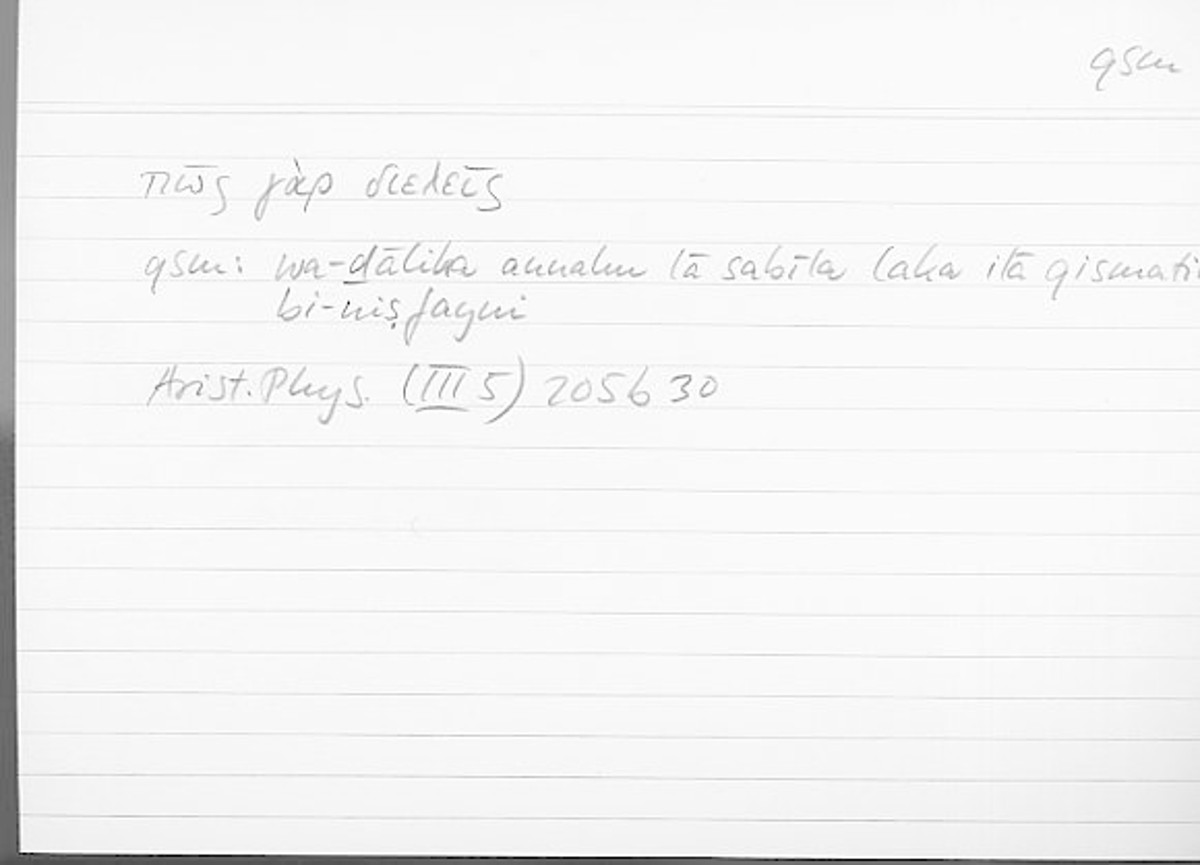 qsm
πῶς γὰρ διελεῖς
qsm: wa-ḏālika annahu lā sabīla laka ilā qismati
bi-niṣfayni
Arist. Phys. (III 5) 205b 30